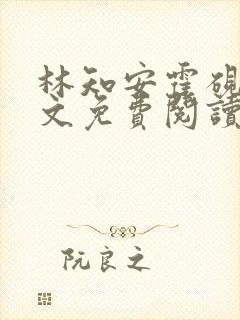 林知安霍硯
文免費閱讀
阮良之